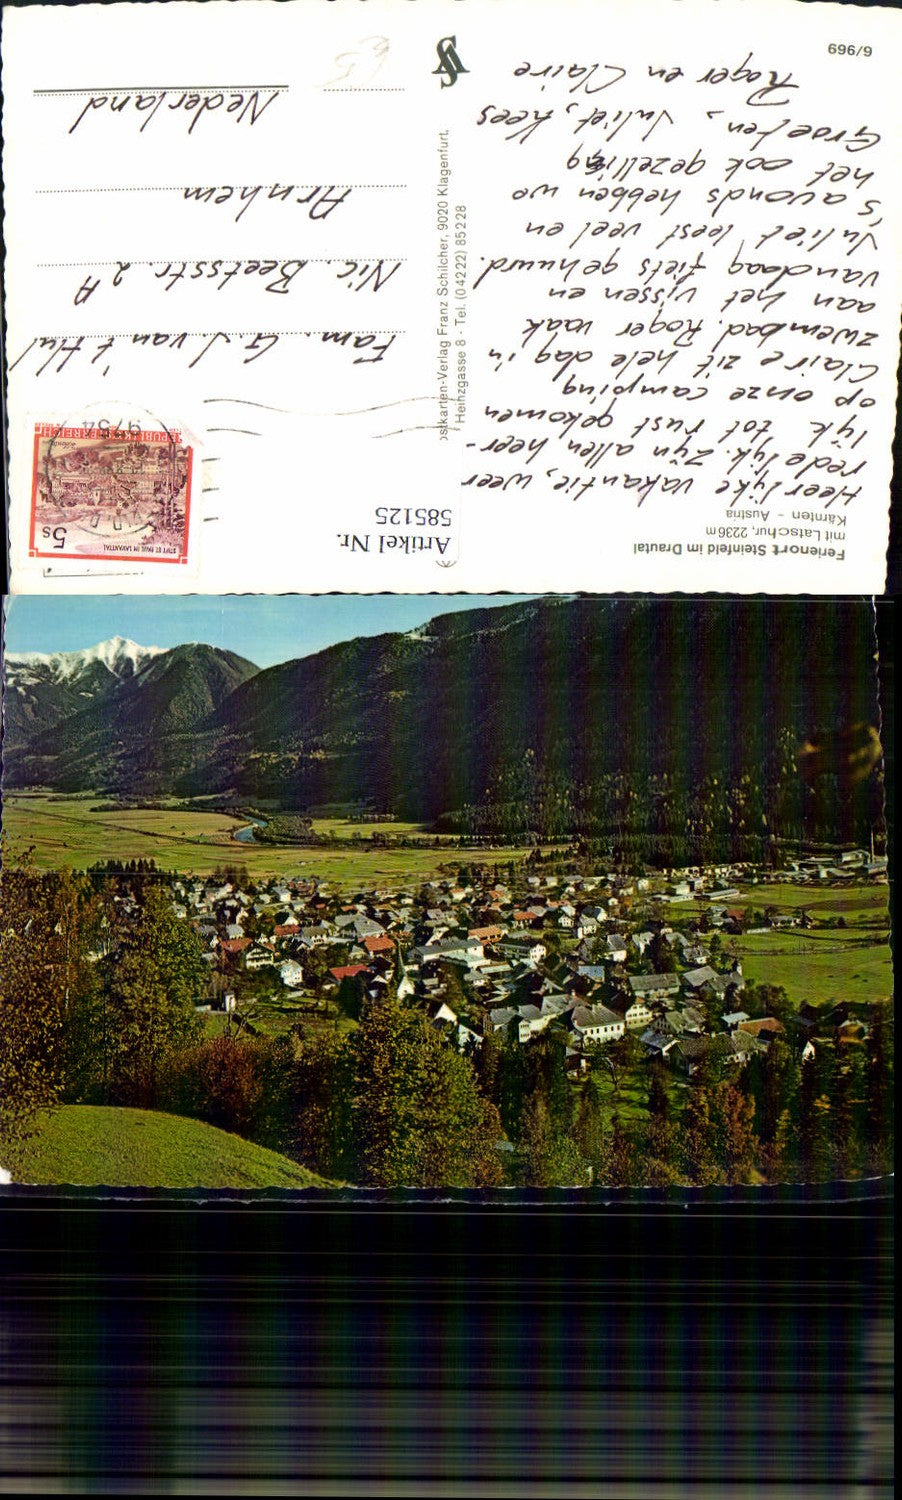 Ferienort Steinfeld im Drautal
mit Latschur, 2236m
Kärnten - Austria
Heerlijke vakantie, weer
redelijk. Zijn allen heer-
lijk tot rust gekomen
op onze camping
Claire zit hele dag in
zwembad. Roger vaak
aan het vissen en
vandaag fiets gehuurd.
Juliet leest veel en
's avonds hebben we
het ook gezellig
Groeten, Juliet, Kees
Roger en Claire
6/969
Artikel Nr.
585125
STIFT ST. PAUL IM LAVANTTAL
5s
REPUBLIK ÖSTERREICH
9754
Fam. G.J. van 't Hul
Nic. Beetsstr. 2A
Arnhem
Nederland
ostkarten-Verlag Franz Schilcher, 9020 Klagenfurt,
Heinzgasse 8 · Tel. (04222) 85228